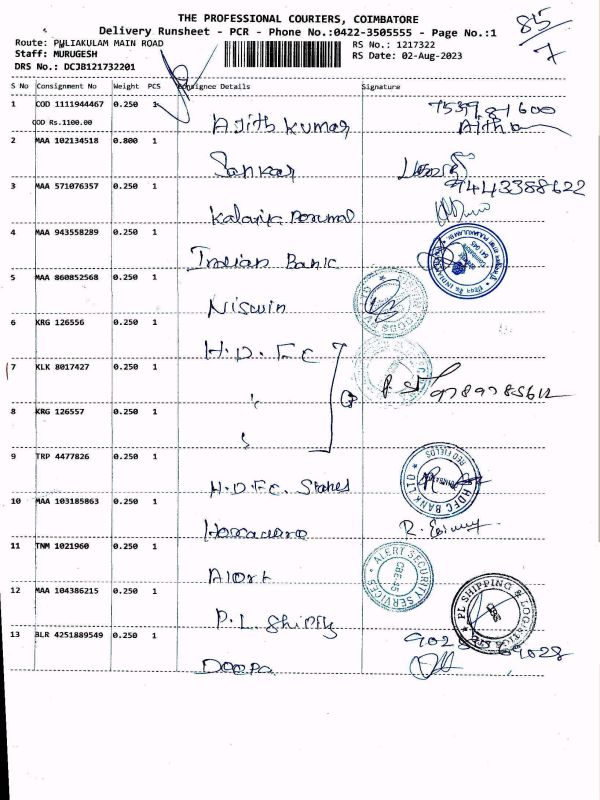 THE PROFESSIONAL COURIERS, COIMBATORE
Delivery Runsheet - PCR - Phone No.:0422-3505555 - Page No.:1
85/7
Route: PULIAKULAM MAIN ROAD
RS No.: 1217322
Staff: MURUGESH
RS Date: 02-Aug-2023
DRS No.: DCJB121732201
S No Consignment No Weight PCS Consignee Details Signature
1 COD 1111944467 0.250 1
COD Rs.1100.00 Ajith Kumar
2 MAA 102134518 0.800 1
Sankar
9443388622
3 MAA 571076357 0.250 1
4 MAA 943558289 0.250 1
Indian Bank
5 MAA 860852568 0.250 1
Niswin
6 KRG 126556 0.250 1
H.D.F.C
7 KLK 8017427 0.250 1
8 KRG 126557 0.250 1
9 TRP 4477826 0.250 1
H.D.F.C. States
HDFC BANK LTD
RED FIELDS
10 MAA 103185863 0.250 1
11 TNM 1021960 0.250 1
Alert
ALERT SECURITY SERVICES
CBE-45
12 MAA 104386215 0.250 1
P.L. Shipg
PL SHIPPING & LOGISTICS
13 BLR 4251889549 0.250 1
Deepa